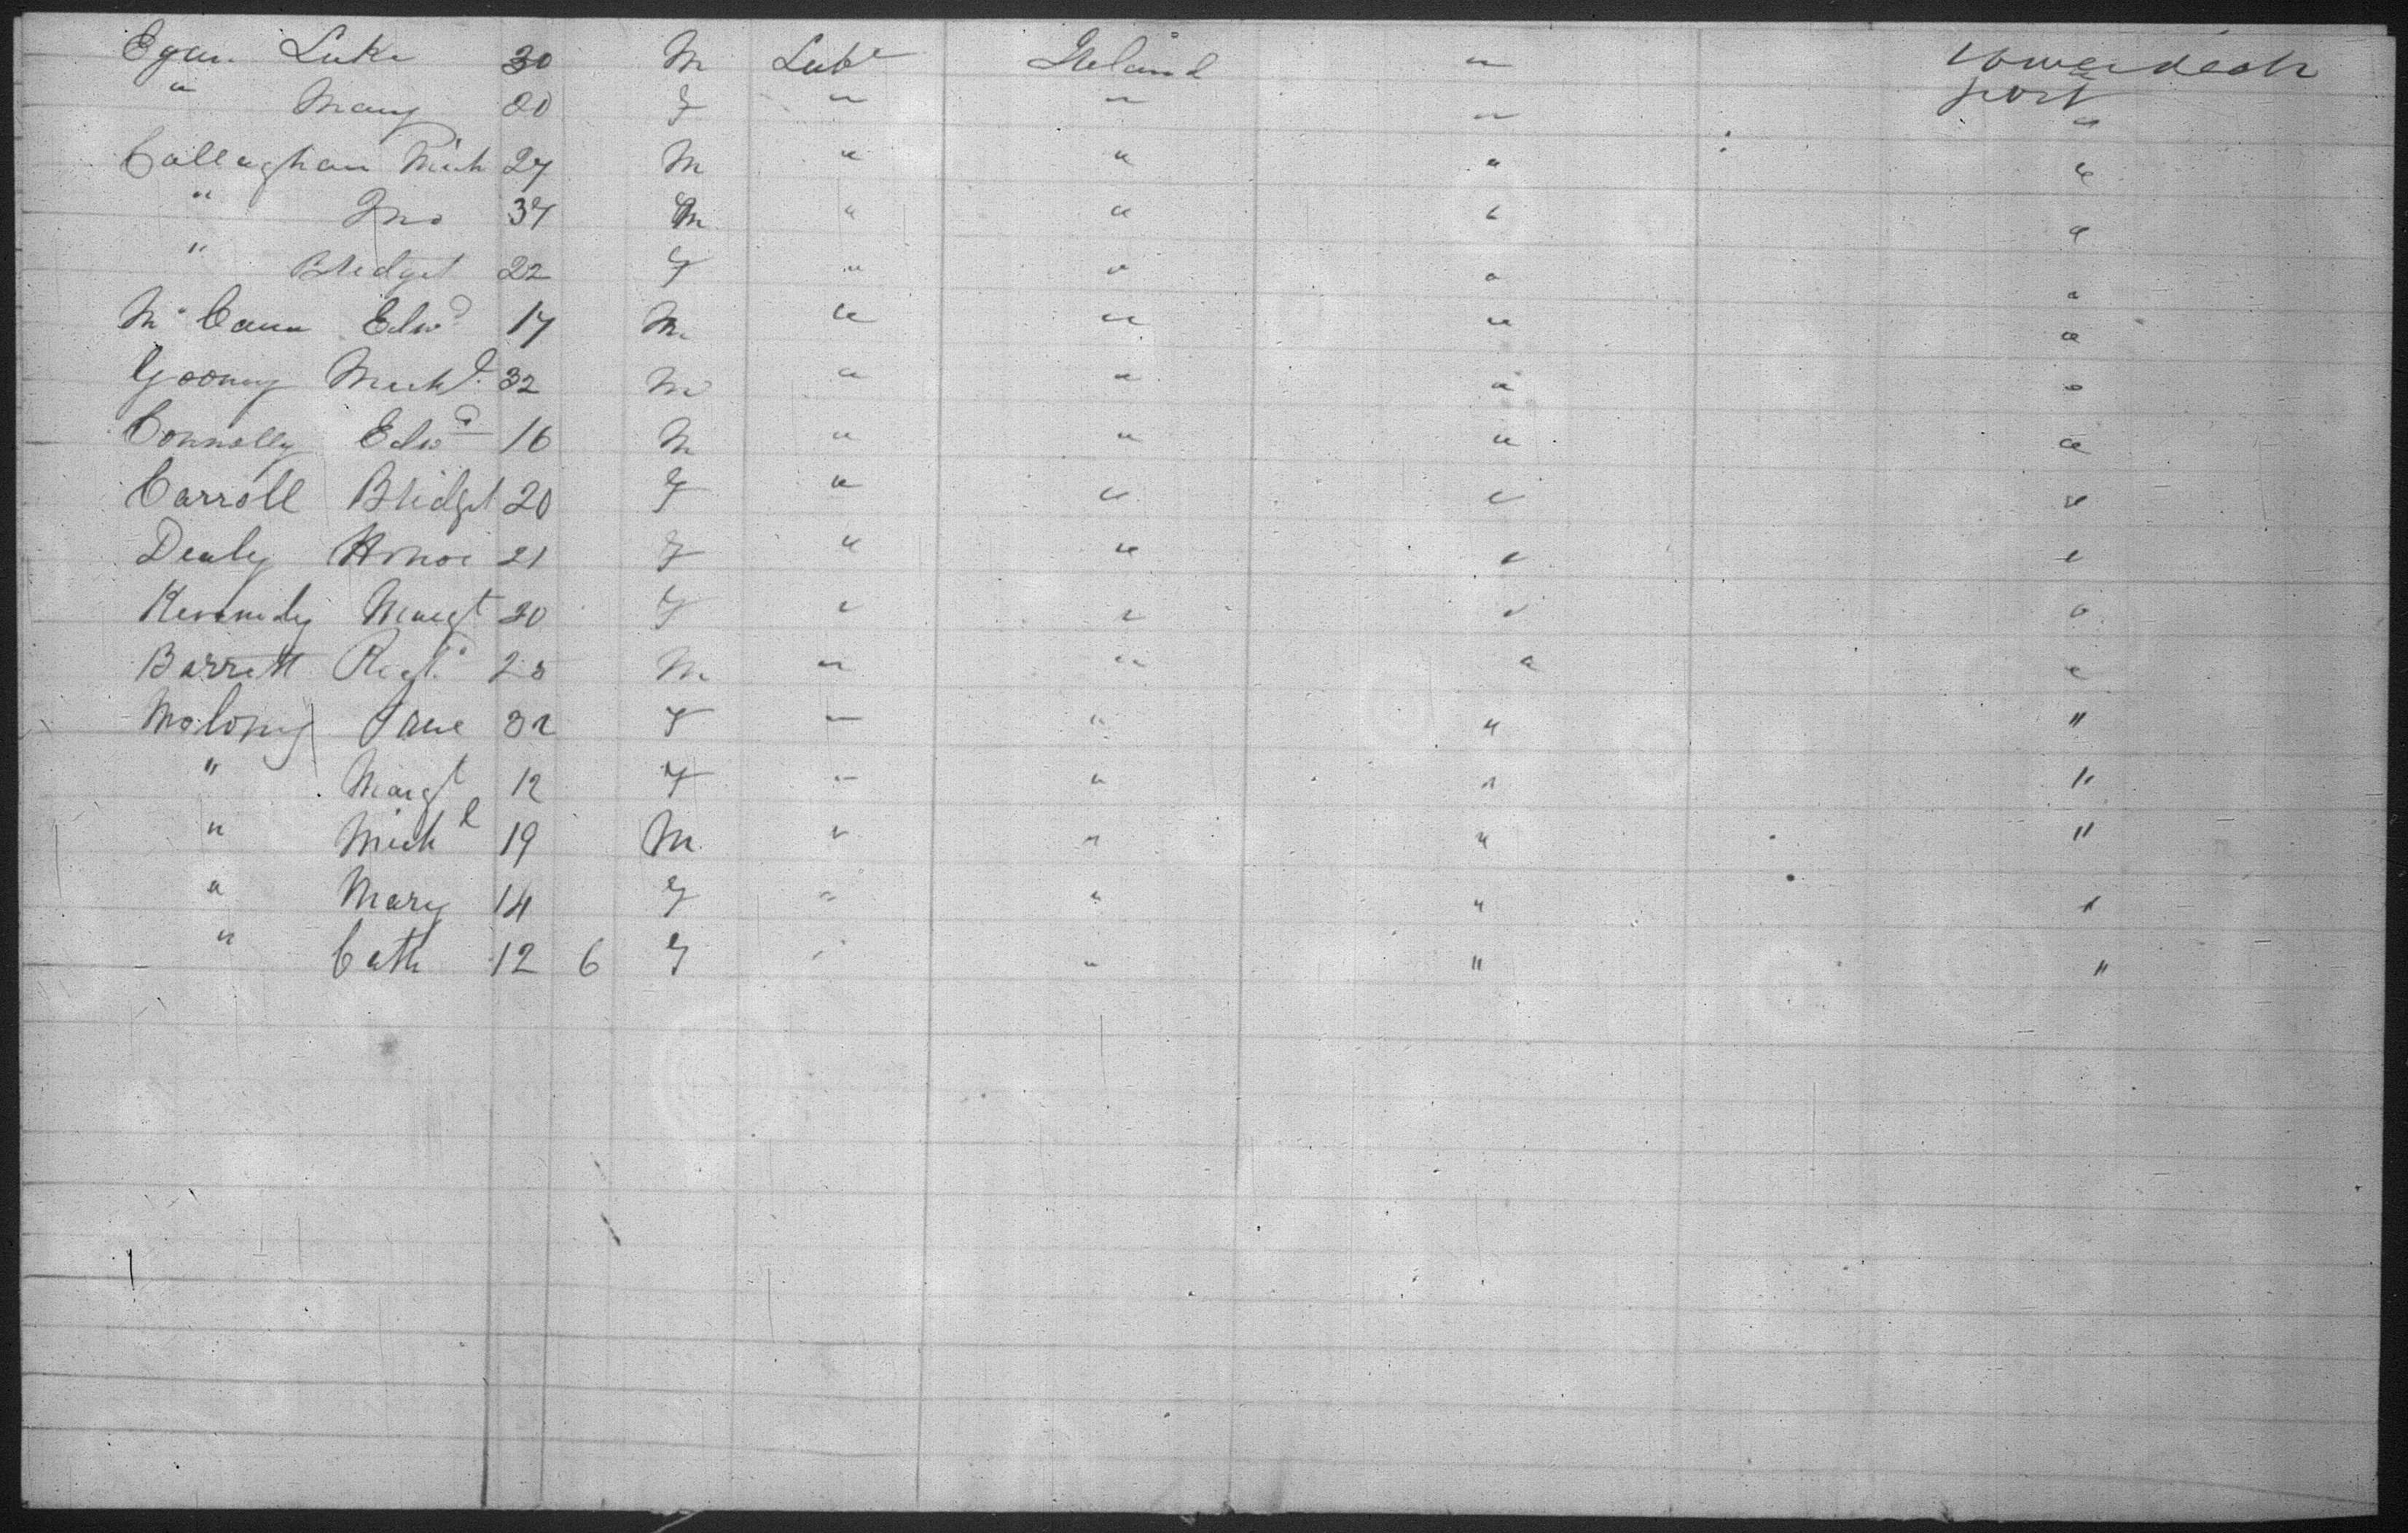 Egan Luke 30 M Labr Ireland " Lower deck
" Mary 20 F " " " port "
Callaghan Mich 27 M " " " "
" Jno 37 M " " " "
" Bridget 22 F " " " "
McCann Edwd 17 M " " " "
Michl 32 M " " " "
Connolly Edwd 16 M " " " "
Carroll Bridget 20 F " " " "
Honor 21 F " " " "
Kennedy Margt 20 F " " " "
Barrett M " " " "
Molony Jane 32 F " " " "
" Margt 12 F " " " "
" Michl 19 M " " " "
" Mary 14 F " " " "
" Cath 12 6 F " " " "